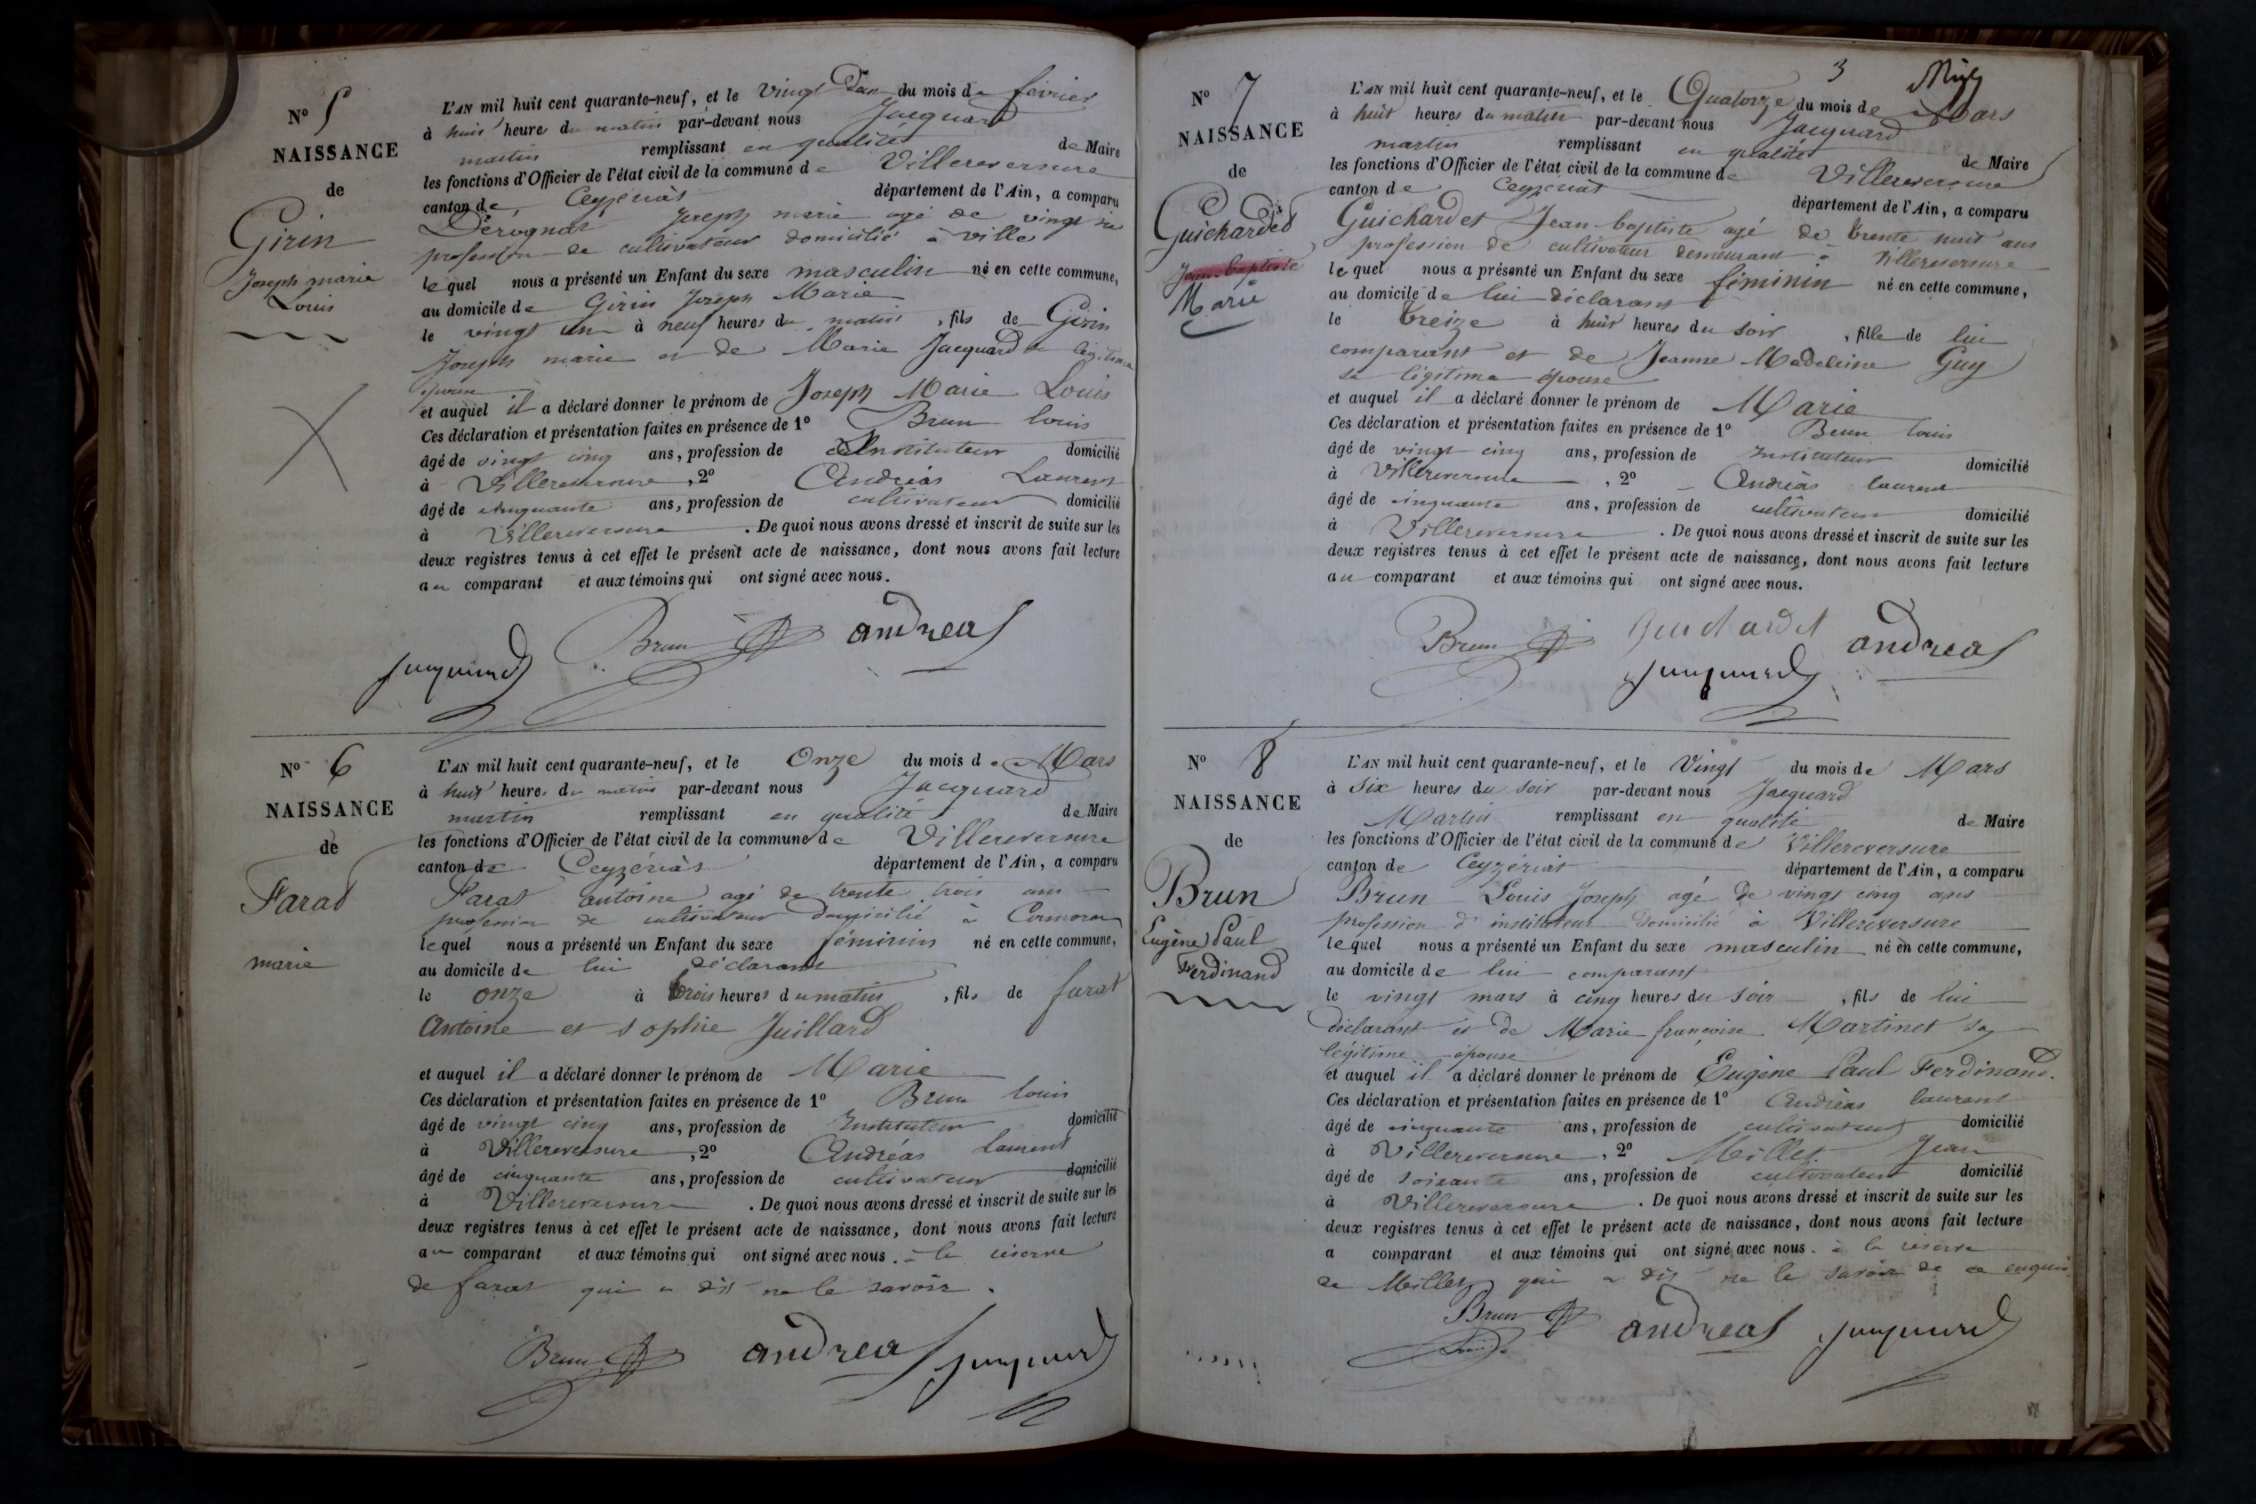 N° 5
NAISSANCE
de
Girin
Joseph marie
Louis
L'AN mil huit cent quarante-neuf, et le vingt un du mois de février
à huit heures du matin par-devant nous Jacquard
martin remplissant en qualité de Maire
les fonctions d'Officier de l'état civil de la commune de Villereversure
canton de Ceyzériat département de l'Ain, a comparu
Dérognat Joseph marie agé de vingt
profession de cultivateur domicilié à Ville
lequel nous a présenté un Enfant du sexe masculin né en cette commune,
au domicile de Girin Joseph Marie
le vingt un à neuf heures du matin, fils de Girin
Joseph marie et de Marie Jacquard sa légitime
épouse
et auquel il a déclaré donner le prénom de Joseph Marie Louis
Ces déclaration et présentation faites en présence de 1° Brun louis
âgé de vingt cinq ans, profession de Instituteur domicilié
à Villereversure, 2° Andréas Laurent
âgé de cinquante ans, profession de cultivateur domicilié
à Villereversure. De quoi nous avons dressé et inscrit de suite sur les
deux registres tenus à cet effet le présent acte de naissance, dont nous avons fait lecture
au comparant et aux témoins qui ont signé avec nous.
Jacquard Brun andreas
N° 6
NAISSANCE
de
Farat
marie
L'AN mil huit cent quarante-neuf, et le Onze du mois de Mars
à huit heures du matin par-devant nous Jacquard
martin remplissant en qualité de Maire
les fonctions d'Officier de l'état civil de la commune de Villereversure
canton de Ceyzériat département de l'Ain, a comparu
Farat antoine agé de trente trois ans
profession de cultivateur domicilié à Cormoron
lequel nous a présenté un Enfant du sexe féminin né en cette commune,
au domicile de lui déclarant
le onze à trois heures du matin, fils de farat
Antoine et sophie Juillard
et auquel il a déclaré donner le prénom de Marie
Ces déclaration et présentation faites en présence de 1° Brun louis
âgé de vingt cinq ans, profession de Instituteur domicilié
à Villereversure, 2° Andréas laurent
âgé de cinquante ans, profession de cultivateur domicilié
à Villereversure. De quoi nous avons dressé et inscrit de suite sur les
deux registres tenus à cet effet le présent acte de naissance, dont nous avons fait lecture
au comparant et aux témoins qui ont signé avec nous. à la réserve
de farat qui a dit ne le savoir.
Brun andreas Jacquard
3
N° 7
NAISSANCE
de
Guichardet
Jean-baptiste
Marie
L'AN mil huit cent quarante-neuf, et le Quatorze du mois de Mars
à huit heures du matin par-devant nous Jacquard
martin remplissant en qualité de Maire
les fonctions d'Officier de l'état civil de la commune de Villereversure
canton de Ceyzériat département de l'Ain, a comparu
Guichardet Jean-baptiste agé de trente huit ans
profession de cultivateur demeurant à Villereversure
lequel nous a présenté un Enfant du sexe féminin né en cette commune,
au domicile de lui déclarant
le treize à huit heures du soir, fille de lui
comparant et de Jeanne Madeleine Guy
sa légitime épouse
et auquel il a déclaré donner le prénom de Marie
Ces déclaration et présentation faites en présence de 1° Brun louis
âgé de vingt cinq ans, profession de Instituteur domicilié
à Villereversure, 2° Andréas laurent
âgé de cinquante ans, profession de cultivateur domicilié
à Villereversure. De quoi nous avons dressé et inscrit de suite sur les
deux registres tenus à cet effet le présent acte de naissance, dont nous avons fait lecture
au comparant et aux témoins qui ont signé avec nous.
Brun Guichardet andreas
Jacquard
N° 8
NAISSANCE
de
Brun
Eugène Paul
Ferdinand
L'AN mil huit cent quarante-neuf, et le Vingt du mois de Mars
à six heures du soir par-devant nous Jacquard
Martin remplissant en qualité de Maire
les fonctions d'Officier de l'état civil de la commune de Villereversure
canton de Ceyzériat département de l'Ain, a comparu
Brun Louis Joseph agé de vingt cinq ans
profession d'instituteur domicilié à Villereversure
lequel nous a présenté un Enfant du sexe masculin né en cette commune,
au domicile de lui comparant
le vingt mars à cinq heures du soir, fils de lui
déclarant et de Marie françoise Martinet sa
légitime épouse
et auquel il a déclaré donner le prénom de Eugène Paul Ferdinand.
Ces déclaration et présentation faites en présence de 1° Andréas laurent
âgé de cinquante ans, profession de cultivateur domicilié
à Villereversure, 2° Millet Jean
âgé de soixante ans, profession de cultivateur domicilié
à Villereversure. De quoi nous avons dressé et inscrit de suite sur les
deux registres tenus à cet effet le présent acte de naissance, dont nous avons fait lecture
a comparant et aux témoins qui ont signé avec nous. à la réserve
de Millet qui a dit ne le savoir de ce enquis
Brun andreas Jacquard